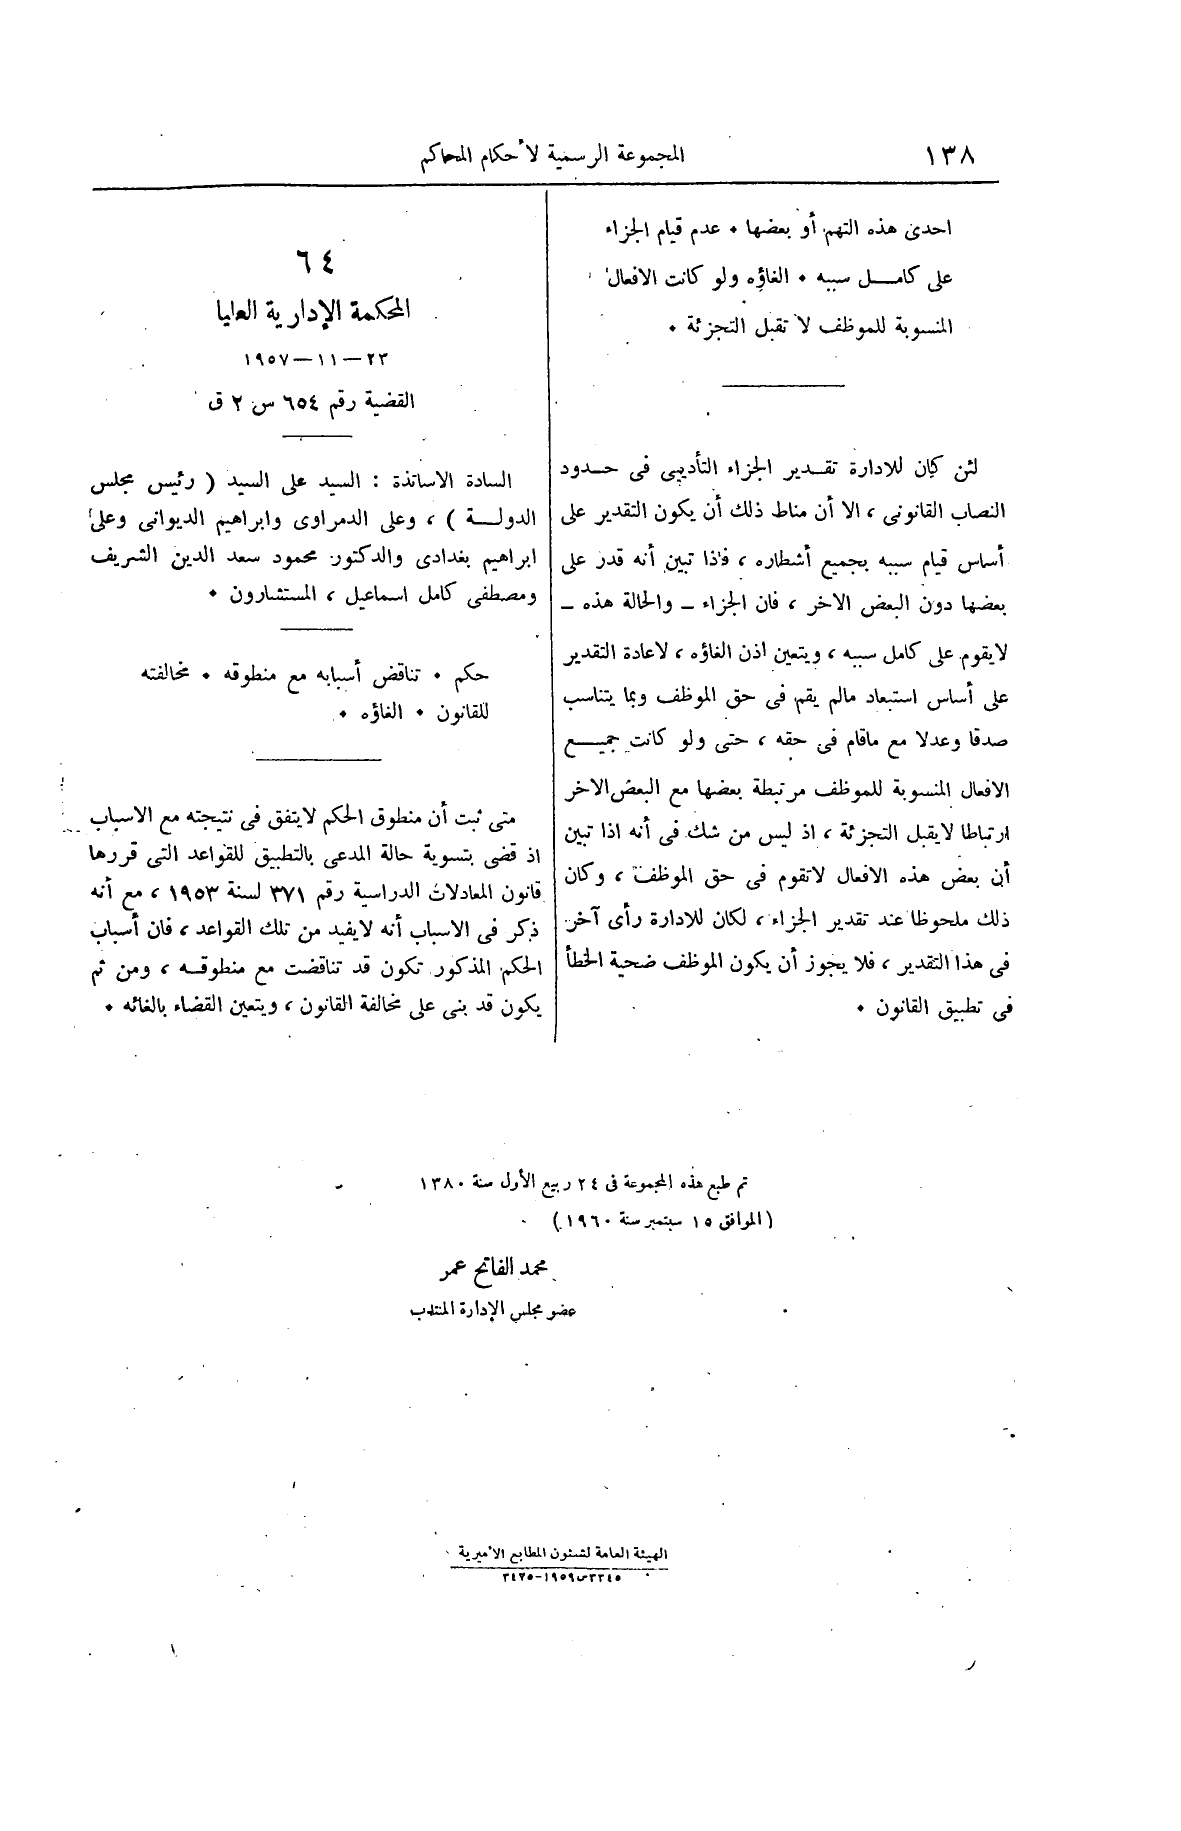 ١٣٨
المجموعة الرسمية لأحكام المحاكم
احدى هذه التهم أو بعضها ٠ عدم قيام الجزاء
على كامــل سببه ٠ الغاؤه ولو كانت الافعال
المنسوبة للموظف لا تقبل التجزئة ٠
لئن كان للادارة تقــدير الجزاء التأديبى فى حــدود
النصاب القانونى ، الا أن مناط ذلك أن يكون التقدير على
أساس قيام سببه بجميع أشطاره ، فاذا تبين أنه قدر على
بعضها دون البعض الاخر ، فان الجزاء ـ والحالة هذه ـ
لايقوم على كامل سببه ، ويتعين اذن الغاؤه ، لاعادة التقدير
على أساس استبعاد مالم يقم فى حق الموظف وبما يتناسب
صدقا وعدلا مع ماقام فى حقه ، حتى ولو كانت جميــع
الافعال المنسوبة للموظف مرتبطة بعضها مع البعض الاخر
ارتباطا لايقبل التجزئة ، اذ ليس من شك فى أنه اذا تبين
أن بعض هذه الافعال لاتقوم فى حق الموظف ، وكان
ذلك ملحوظا عند تقدير الجزاء ، لكان للادارة رأى آخر
فى هذا التقدير ، فلا يجوز أن يكون الموظف ضحية الخطأ
فى تطبيق القانون ٠
٦٤
المحكمة الإدارية العليا
٢٣–١١–١٩٥٧
القضية رقم ٦٥٤ س ٢ ق
السادة الاساتذة : السيد على السيد ( رئيس مجلس
الدولــة ) ، وعلى الدمراوى وابراهيم الديوانى وعلى
ابراهيم بغدادى والدكتور محمود سعد الدين الشريف
ومصطفى كامل اسماعيل ، المستشارون ٠
حكم ٠ تناقض أسبابه مع منطوقه ٠ مخالفته
للقانون ٠ الغاؤه ٠
متى ثبت أن منطوق الحكم لايتفق فى نتيجته مع الاسباب
اذ قضى بتسوية حالة المدعى بالتطبيق للقواعد التى قررها
قانون المعادلات الدراسية رقم ٣٧١ لسنة ١٩٥٣ ، مع أنه
ذكر فى الاسباب أنه لايفيد من تلك القواعد ، فان أسباب
الحكم المذكور تكون قد تناقضت مع منطوقــه ، ومن ثم
يكون قد بنى على مخالفة القانون ، ويتعين القضاء بالغائه ٠
تم طبع هذه المجموعة فى ٢٤ ربيع الأول سنة ١٣٨٠
(الموافق ١٥ سبتمبر سنة ١٩٦٠)
محمد الفاتح عمر
عضو مجلس الإدارة المنتدب
الهيئة العامة لشئون المطابع الأميرية